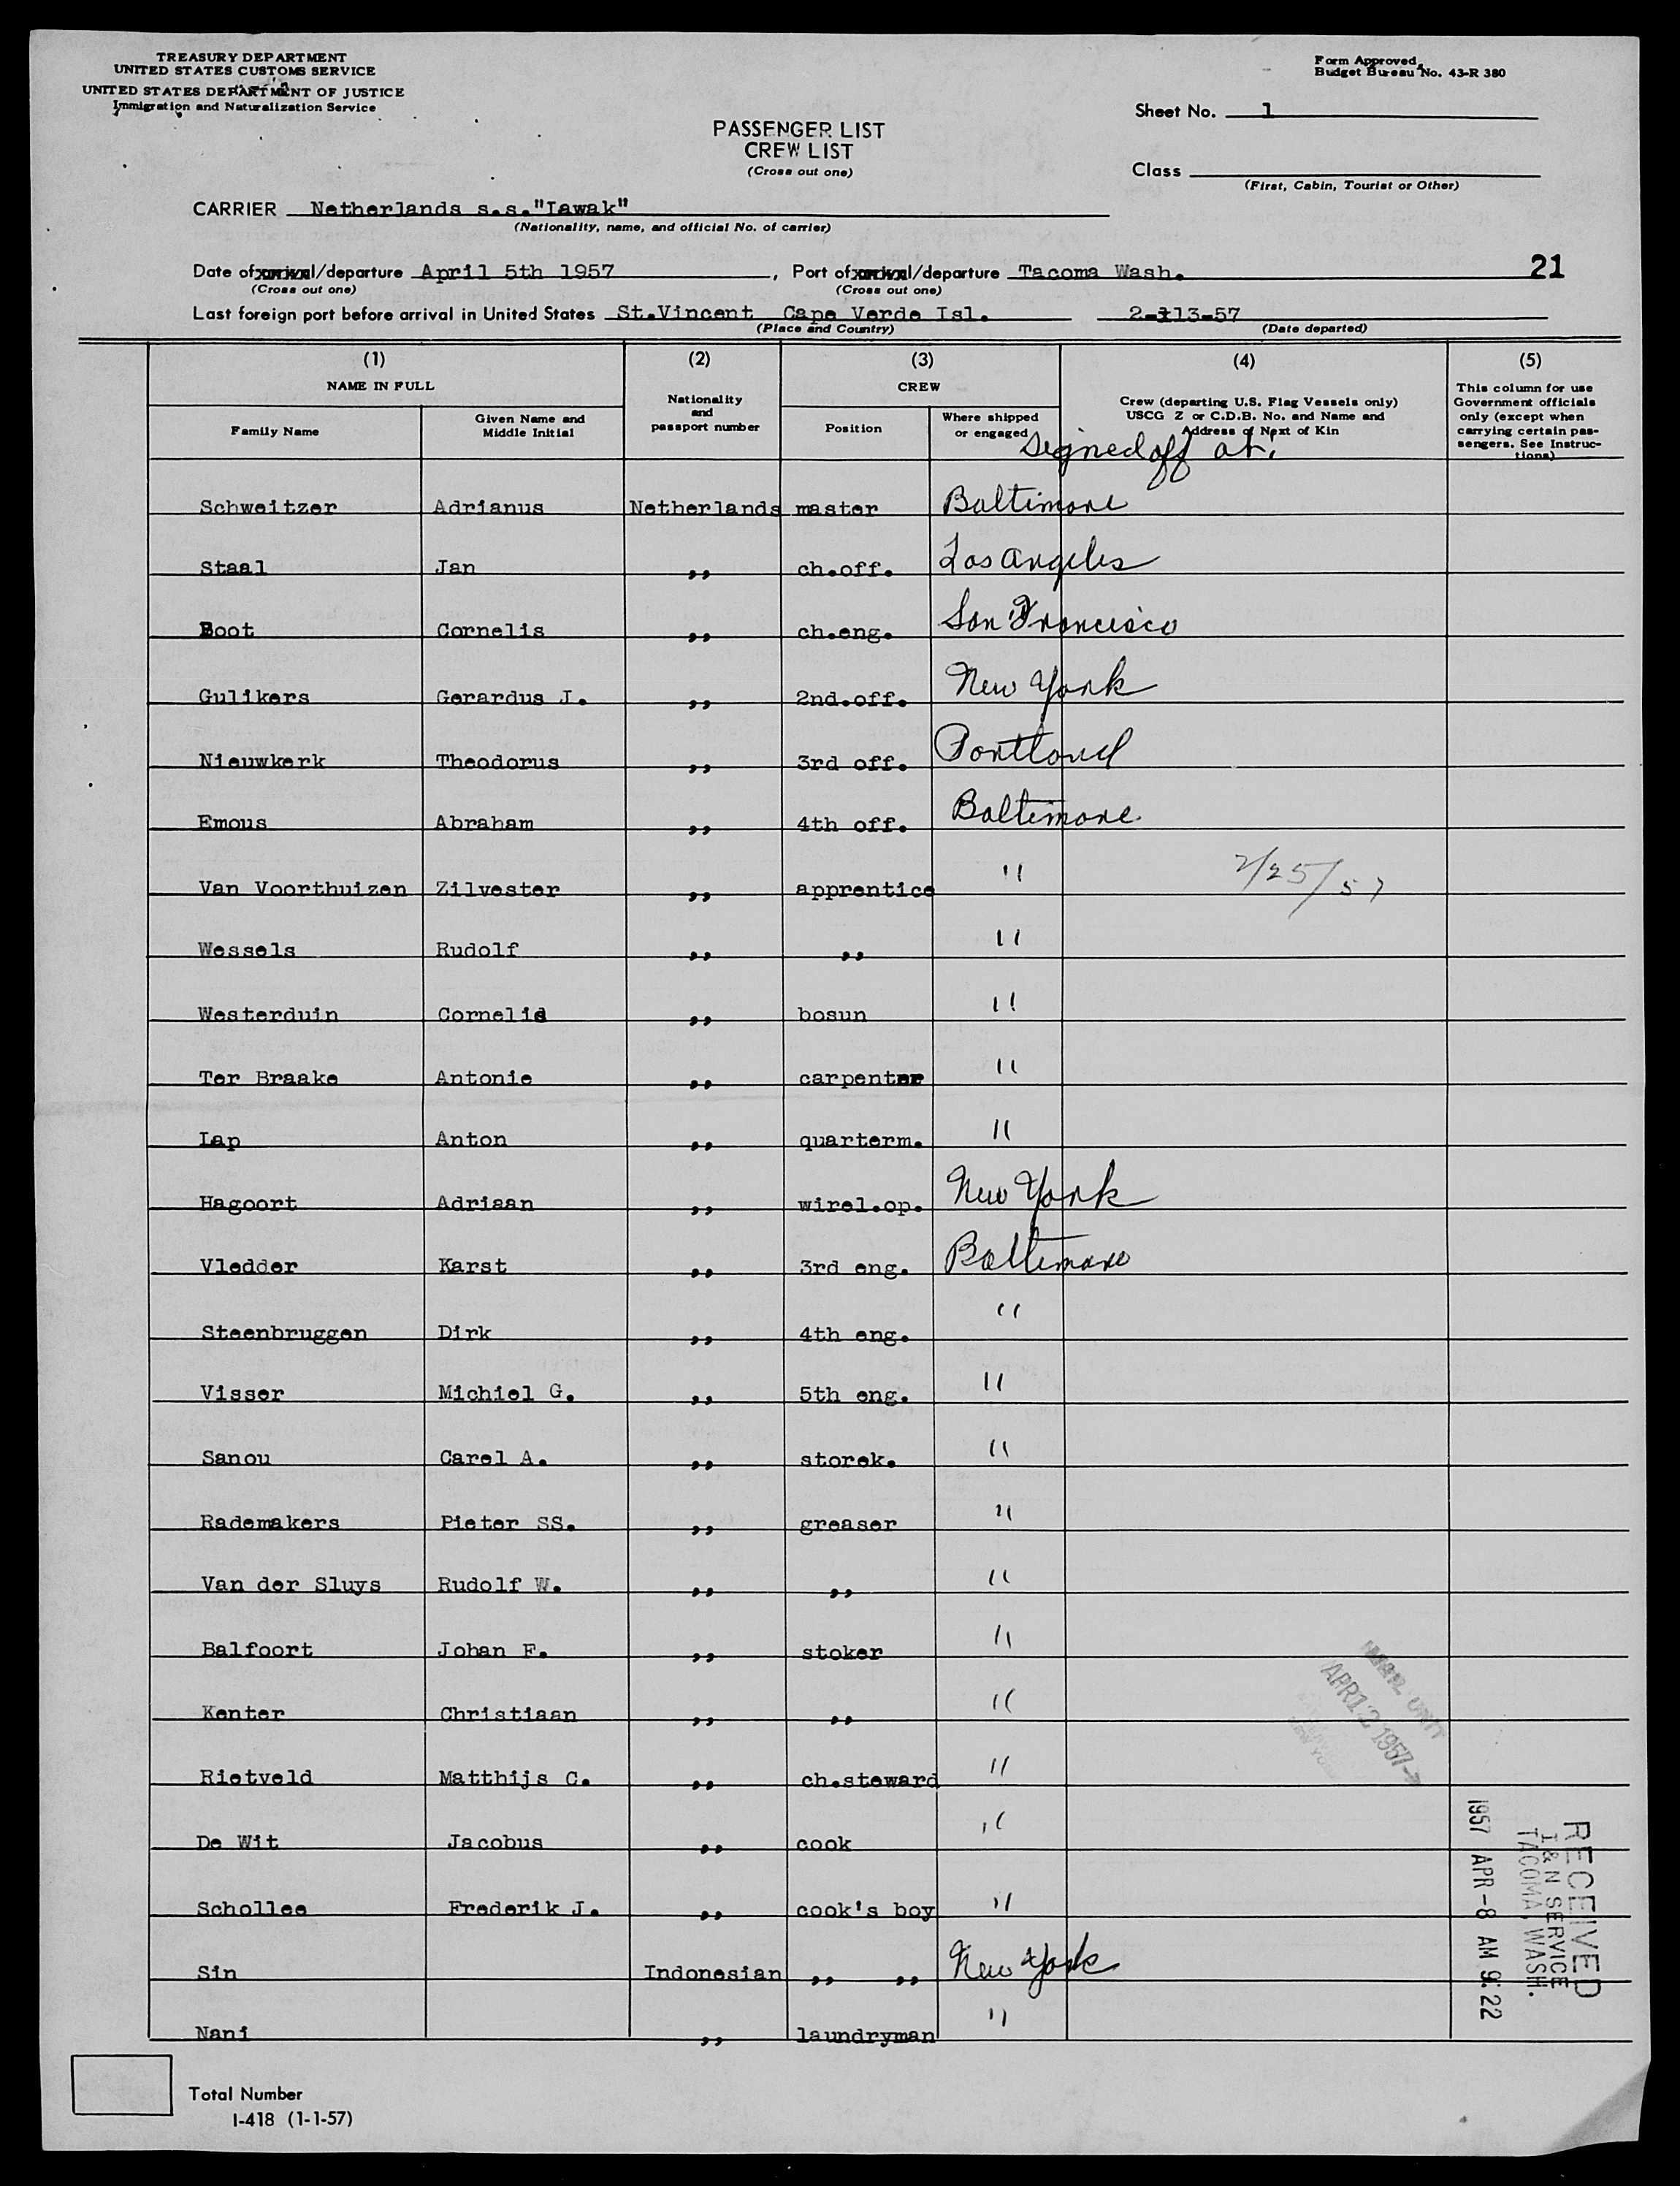 TREASURY DEPARTMENT
UNITED STATES CUSTOMS SERVICE
UNITED STATES DEPARTMENT OF JUSTICE
Immigration and Naturalization Service
Form Approved
Budget Bureau No. 43-R 380
Sheet No. 1
PASSENGER LIST
CREW LIST
(Cross out one)
Class
(First, Cabin, Tourist or Other)
CARRIER Netherlands s.s."Lawak"
(Nationality, name, and official No. of carrier)
Date of arrival/departure April 5th 1957, Port of arrival/departure Tacoma Wash. 21
(Cross out one) (Cross out one)
Last foreign port before arrival in United States St.Vincent Cape Verde Isl. 2-13-57
(Place and Country) (Date departed)
(1) (2) (3) (4) (5)
NAME IN FULL Nationality and passport number CREW Crew (departing U.S. Flag Vessels only) USCG Z or C.D.B. No. and Name and Address of Next of Kin This column for use Government officials only (except when carrying certain passengers. See Instructions)
Family Name Given Name and Middle Initial Position Where shipped or engaged
signed off at:
Schweitzer Adrianus Netherlands master Baltimore
Staal Jan ,, ch.off. Los Angeles
Boot Cornelis ,, ch.eng. San Francisco
Gulikers Gerardus J. ,, 2nd.off. New York
Nieuwkerk Theodorus ,, 3rd off. Portland
Emous Abraham ,, 4th off. Baltimore
Van Voorthuizen Zilvester ,, apprentice " 2/25/57
Wessels Rudolf ,, ,, "
Westerduin Cornelis ,, bosun "
Ter Braake Antonie ,, carpenter "
Lap Anton ,, quarterm. "
Hagoort Adriaan ,, wirel.op. New York
Vledder Karst ,, 3rd eng. Baltimore
Steenbruggen Dirk ,, 4th eng. "
Visser Michiel G. ,, 5th eng. "
Sanou Carel A. ,, storek. "
Rademakers Pieter SS. ,, greaser "
Van der Sluys Rudolf W. ,, ,, "
Balfoort Johan F. ,, stoker "
Kenter Christiaan ,, ,, "
Rietveld Matthijs C. ,, ch.steward "
De Wit Jacobus ,, cook "
Schollee Frederik J. ,, cook's boy "
Sin Indonesian ,, ,, New York
Nani ,, laundryman "
MAIL UNIT
APR 12 1957
RECEIVED
I & N SERVICE
TACOMA, WASH.
1957 APR-8 AM 9:22
Total Number
I-418 (1-1-57)